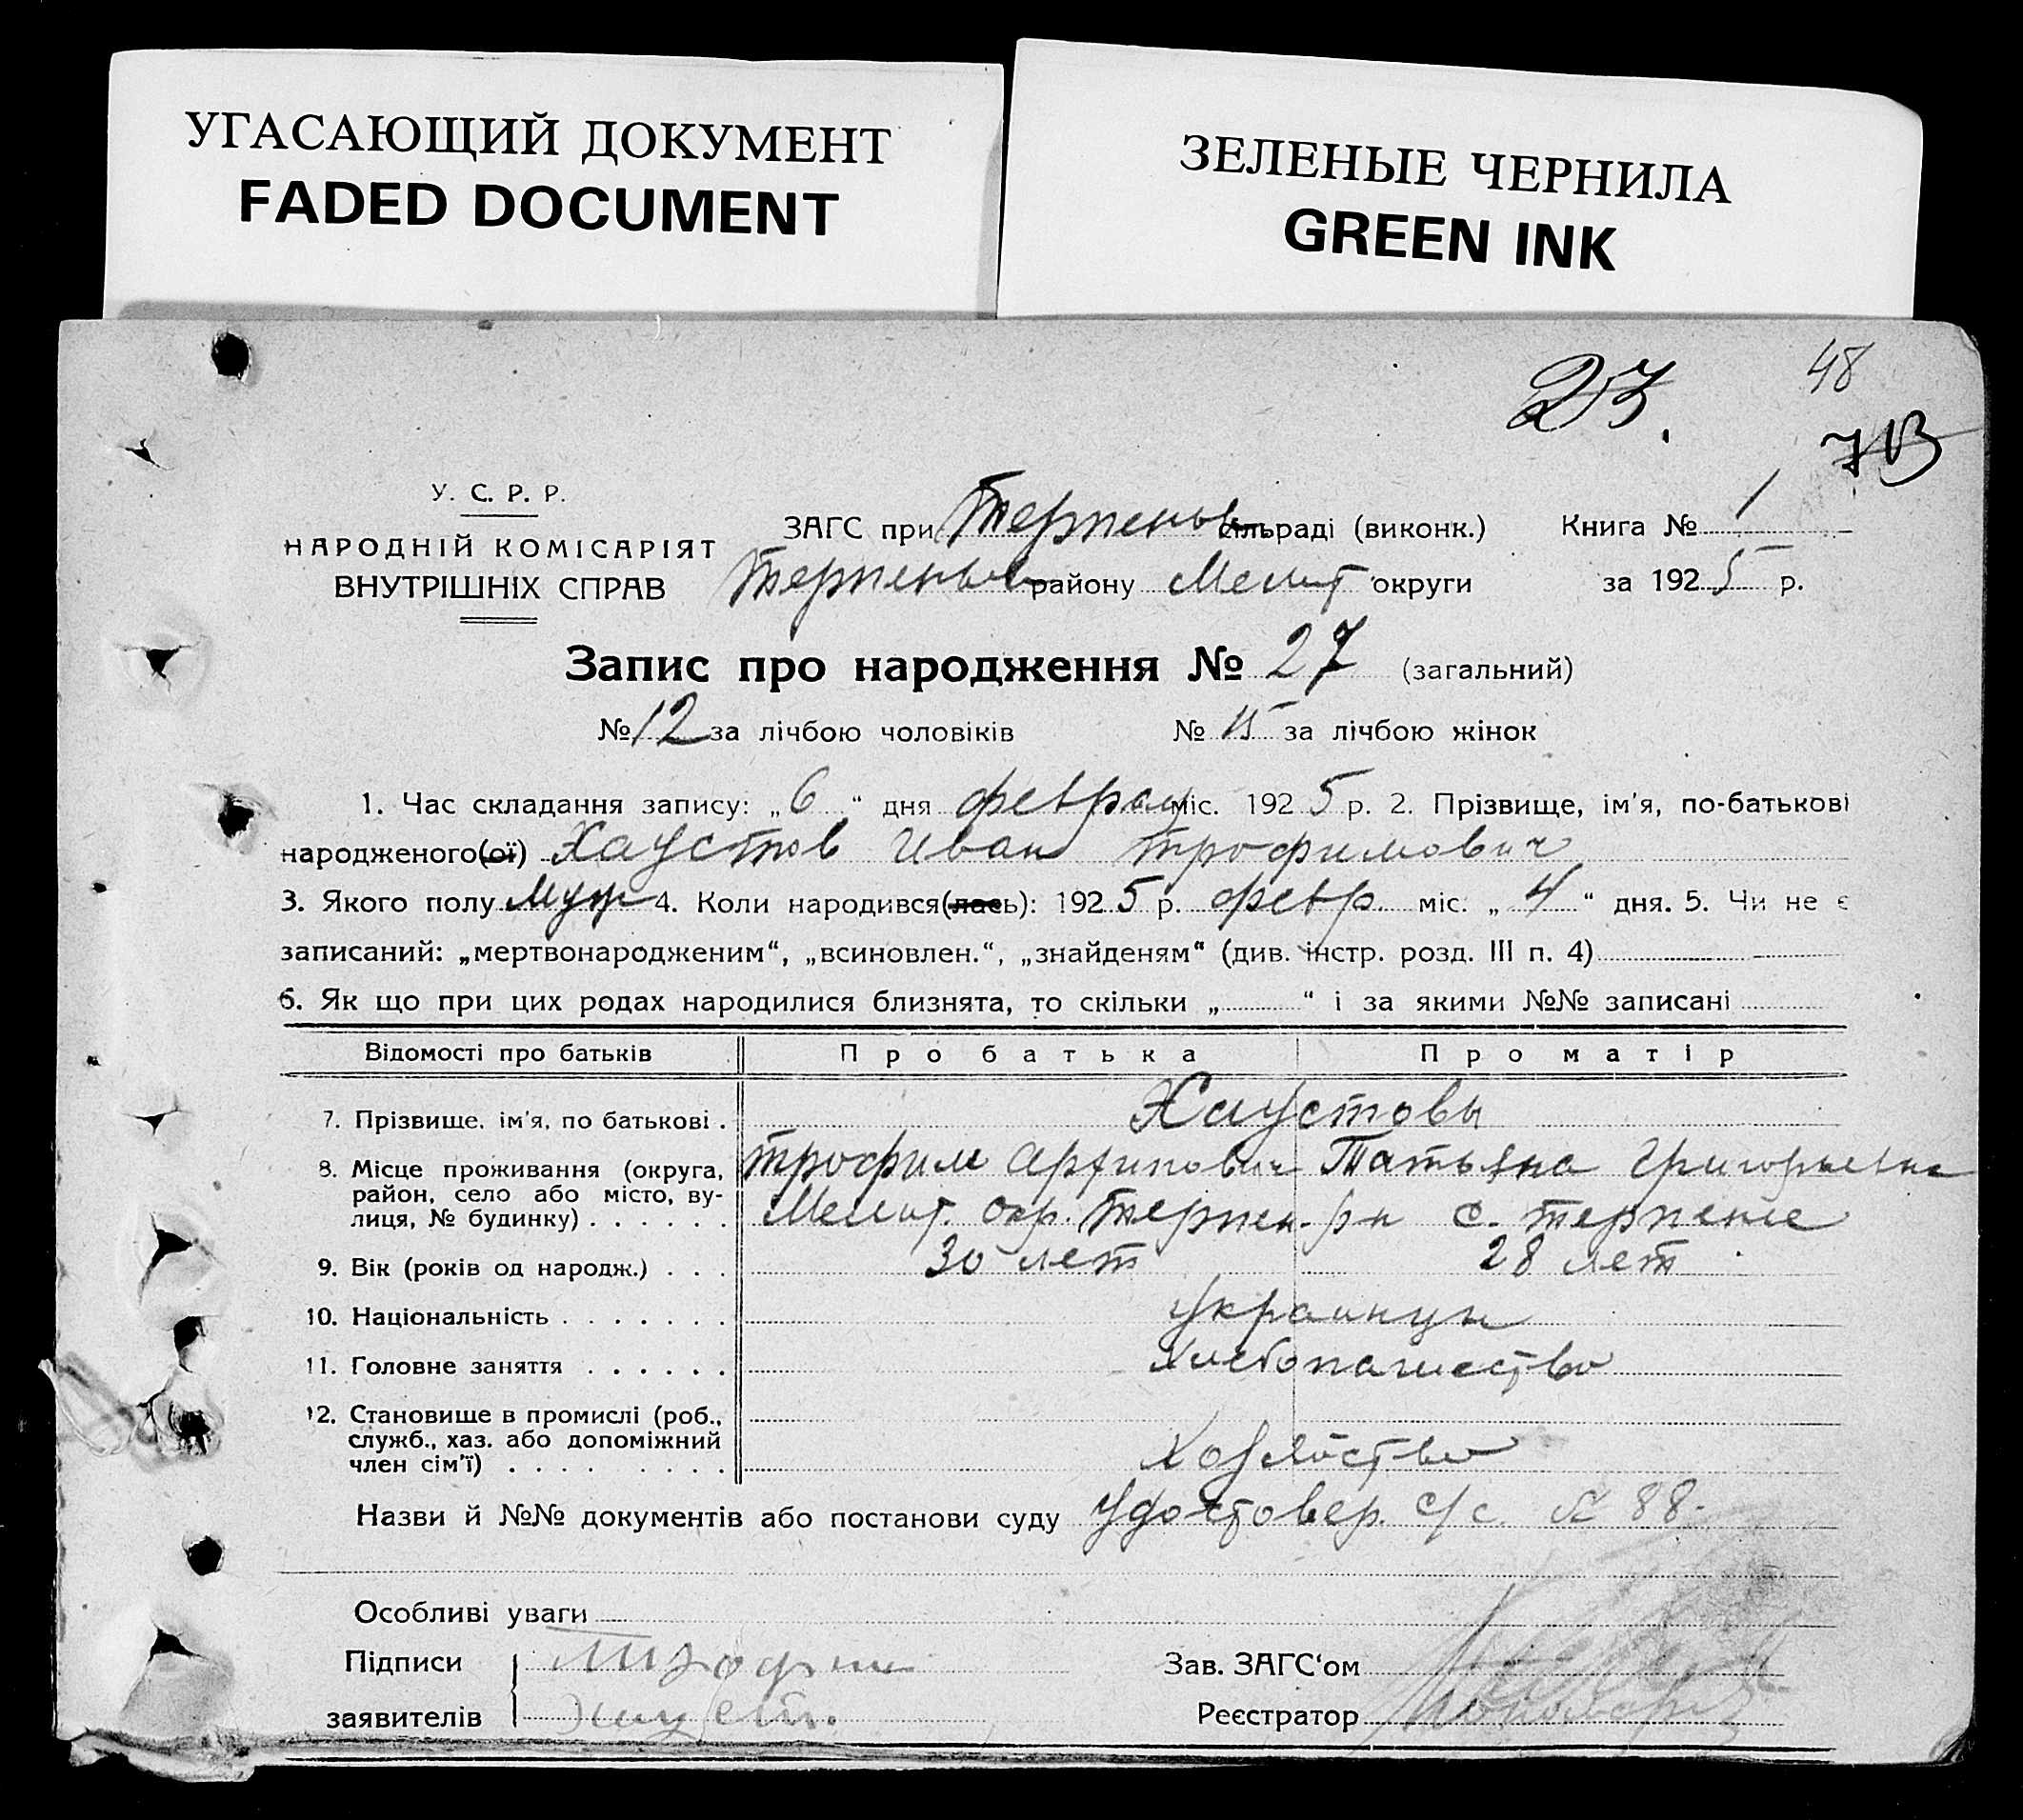 УГАСАЮЩИЙ ДОКУМЕНТ
FADED DOCUMENT
ЗЕЛЕНЫЕ ЧЕРНИЛА
GREEN INK
27.
48
У. С. Р. Р.
НАРОДНІЙ КОМІСАРІЯТ
ВНУТРІШНІХ СПРАВ
ЗАГС при Терпеньев сільраді (виконк.) Книга № 1
Терпеньев району Мелит округи за 1925 р.
Запис про народження № 27 (загальний)
№ 12 за лічбою чоловіків № 15 за лічбою жінок
1. Час складання запису: „6“ дня февраля міс. 1925 р. 2. Прізвище, ім'я, по-батькові
народженого(ої) Хаустов Иван Трофимович
3. Якого полу муж 4. Коли народився(лась): 1925 р. февр. міс. „4“ дня. 5. Чи не є
записаний: „мертвонародженим“, „всиновлен.“, „знайденям“ (див. інстр. розд. III п. 4)
6. Як що при цих родах народилися близнята, то скільки „ “ і за якими №№ записані
Відомості про батьків Про батька Про матір
7. Прізвище, ім'я, по батькові . Хаустовы
Трофим Архипович Татьяна Григорьевна
8. Місце проживання (округа, район, село або місто, ву-
лиця, № будинку) . . . . . . Мелит. окр. Терпен. р-н с. Терпение
9. Вік (років од народж.) . . . 30 лет 28 лет
10. Національність . . . . . . . украинцы
11. Головне заняття . . . . . . Хлебопашество
12. Становище в промислі (роб.,
служб., хаз. або допоміжний
член сім'ї) . . . . . . . . Хозяйство
Назви й №№ документів або постанови суду Удостовер. с/с. № 88-
Особливі уваги
Підписи Трофим Зав. ЗАГС'ом
заявителів Хауст. Реєстратор